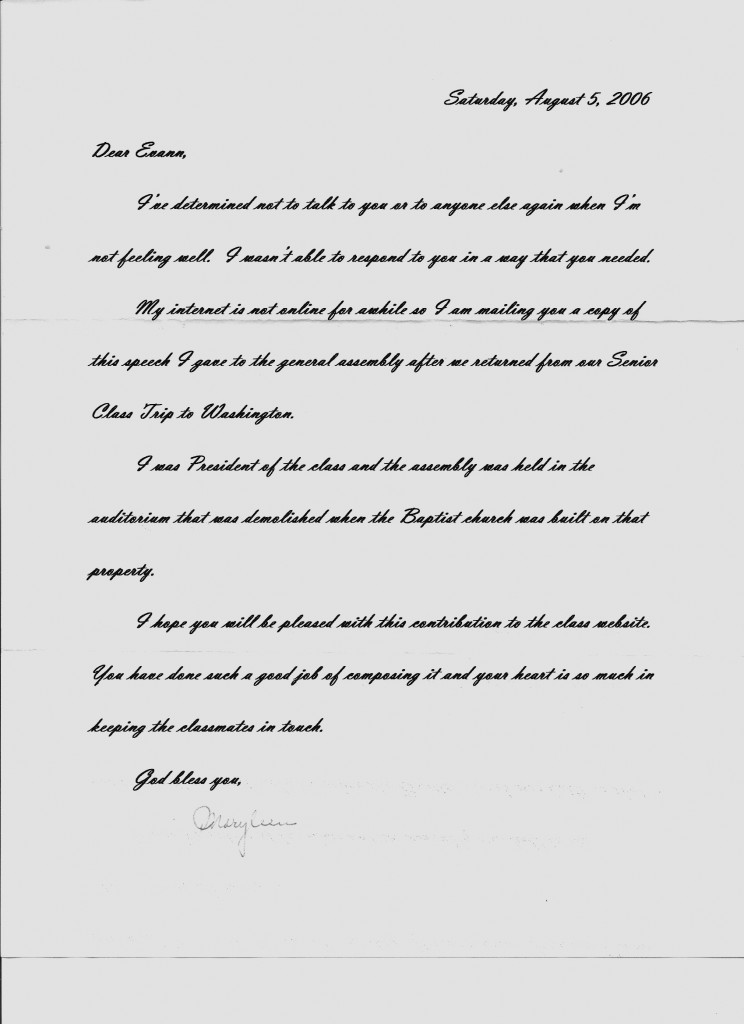 Saturday, August 5, 2006
Dear Evann,
I've determined not to talk to you or to anyone else again when I'm
not feeling well. I wasn't able to respond to you in a way that you needed.
My internet is not online for awhile so I am mailing you a copy of
this speech I gave to the general assembly after we returned from our Senior
Class Trip to Washington.
I was President of the class and the assembly was held in the
auditorium that was demolished when the Baptist church was built on that
property.
I hope you will be pleased with this contribution to the class website.
You have done such a good job of composing it and your heart is so much in
keeping the classmates in touch.
God bless you,